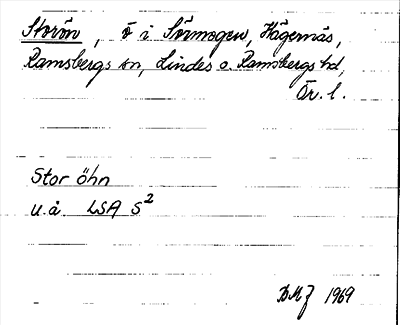 Storön, ö i Sörmogen, Hägernäs,
Ramsbergs sn, Lindes o. Ramsbergs hd,
Ör. l.
Stor öhn
u.å LSA S2
BMJ 1969